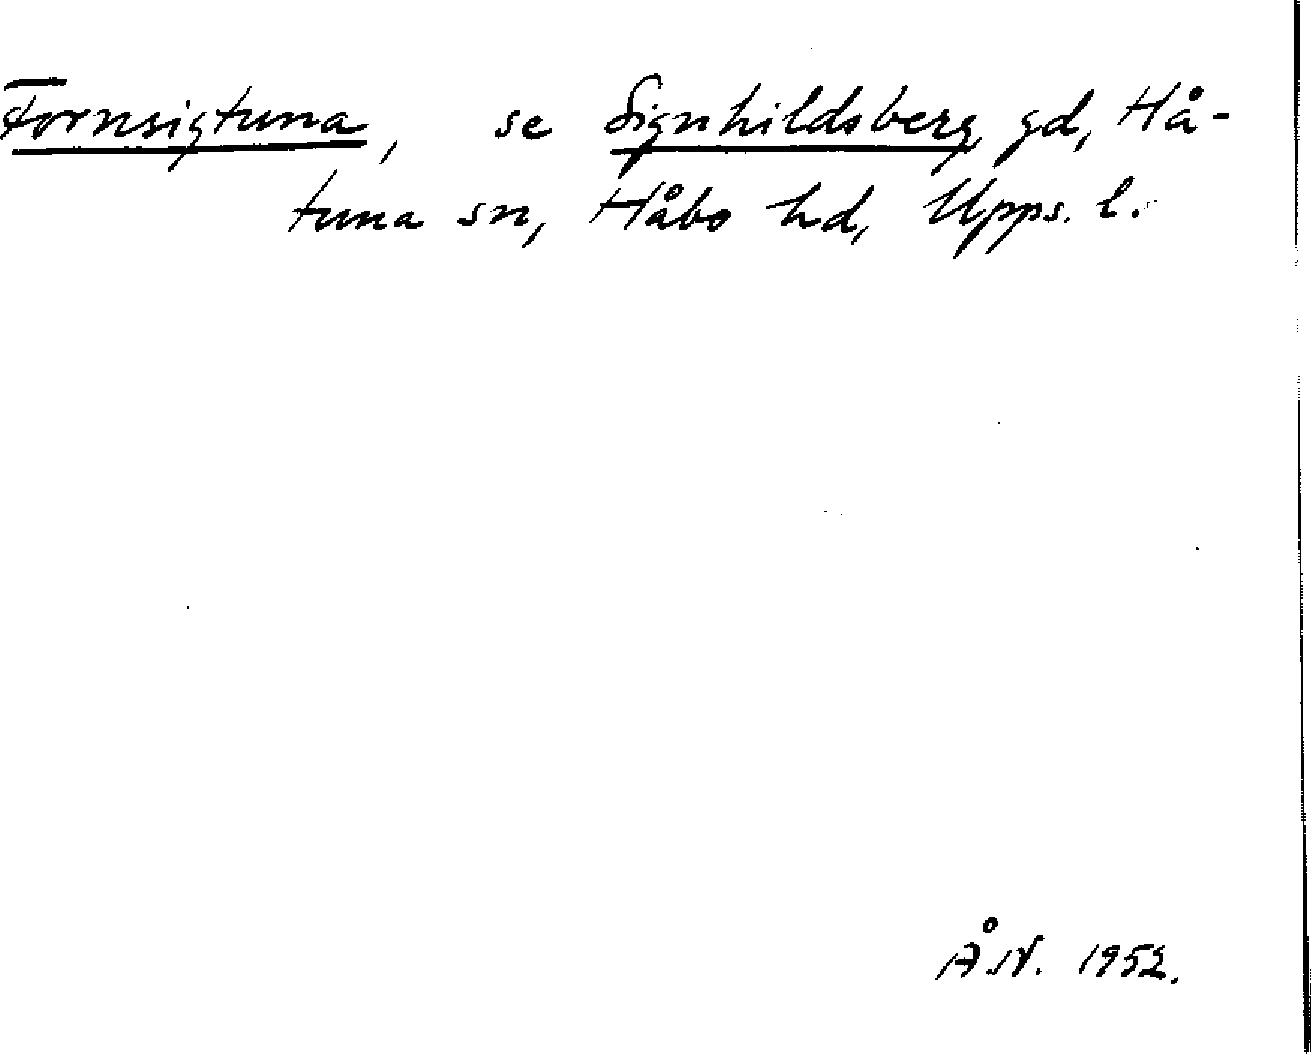 Fornsigtuna, se Signhildsberg, gd, Hå-
tuna sn, Håbo hd, Upps. l.
Å.N. 1952.